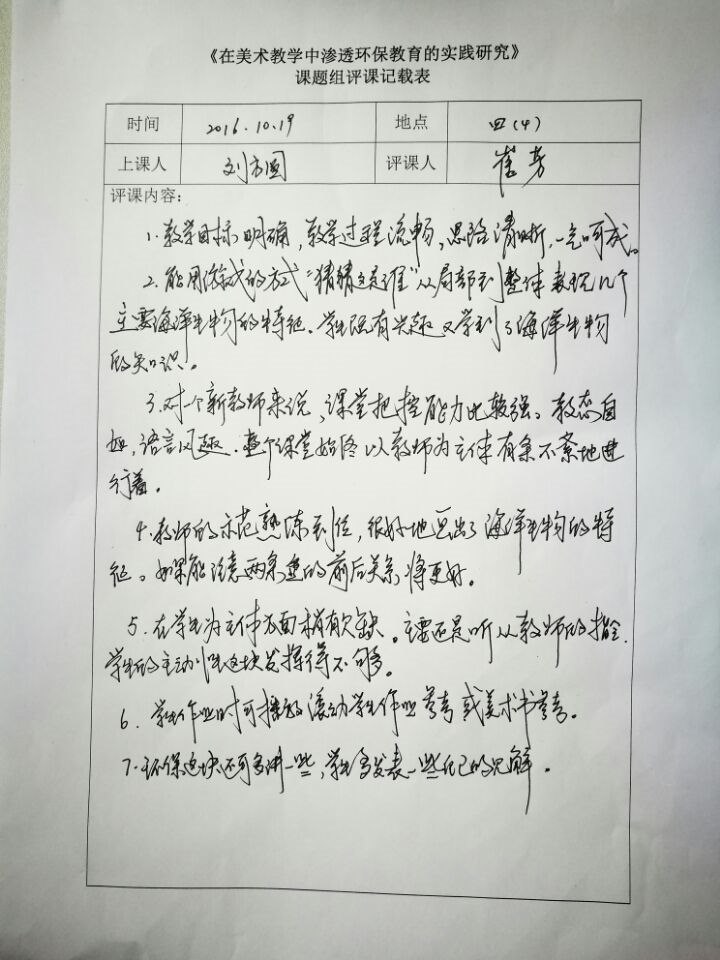 《在美术教学中渗透环保教育的实践研究》
课题组评课记载表
时间 2016.10.19 地点 四(4)
上课人 刘方圆 评课人 崔芳
评课内容:
1.教学目标明确,教学过程流畅,思路清晰,一气呵成。
2.能用游戏的方式“猜猜这是谁”从局部到整体表现几个
主要海洋生物的特征。学生既有兴趣又学到了海洋生物
的知识。
3.对一个新教师来说,课堂把控能力比较强。教态自
如,语言风趣.整个课堂始终以教师为主体有条不紊地进
行着。
4.教师的示范熟练到位,很好地画出了海洋生物的特
征。如果能注意两条鱼的前后关系将更好。
5.在学生为主体方面稍有欠缺。主要还是听从教师的指令.
学生的主动性这块发挥得不够。
6.学生作业时可播放滚动学生作业参考或美术书参考。
7.环保这块还可多讲一些,学生多发表一些自己的见解。